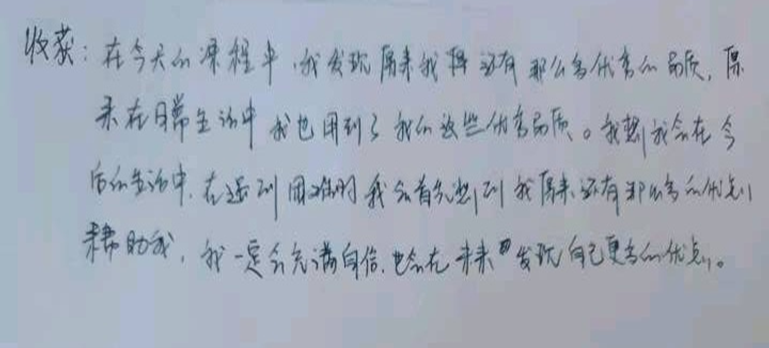 收获：在今天的课程中，我发现原来我 还有那么多优秀的品质，原
来在日常生活中我也用到了我的这些优秀品质。我想我会在今
后的生活中，在遇到困难时我会首先想到我原来还有那么多的优点
来帮助我，我一定会充满自信，也会在未来 发现自己更多的优点。